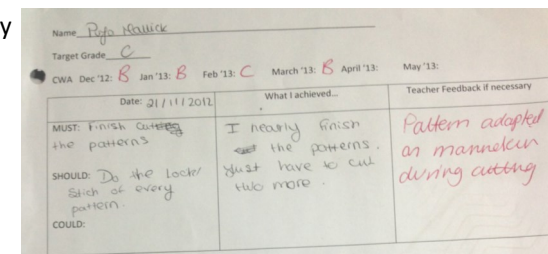 y
Name Puja Mallick
Target Grade C
CWA Dec '12: B Jan '13: B Feb '13: C March '13: B April '13: May '13:
Date: 21/11/2012
What I achieved...
Teacher Feedback if necessary
MUST: Finish cutting
the patterns
SHOULD: Do the Lock/
Stich of every
pattern.
COULD:
I nearly finish
the patterns.
Just have to cut
two more.
Pattern adapted
on mannekin
during cutting